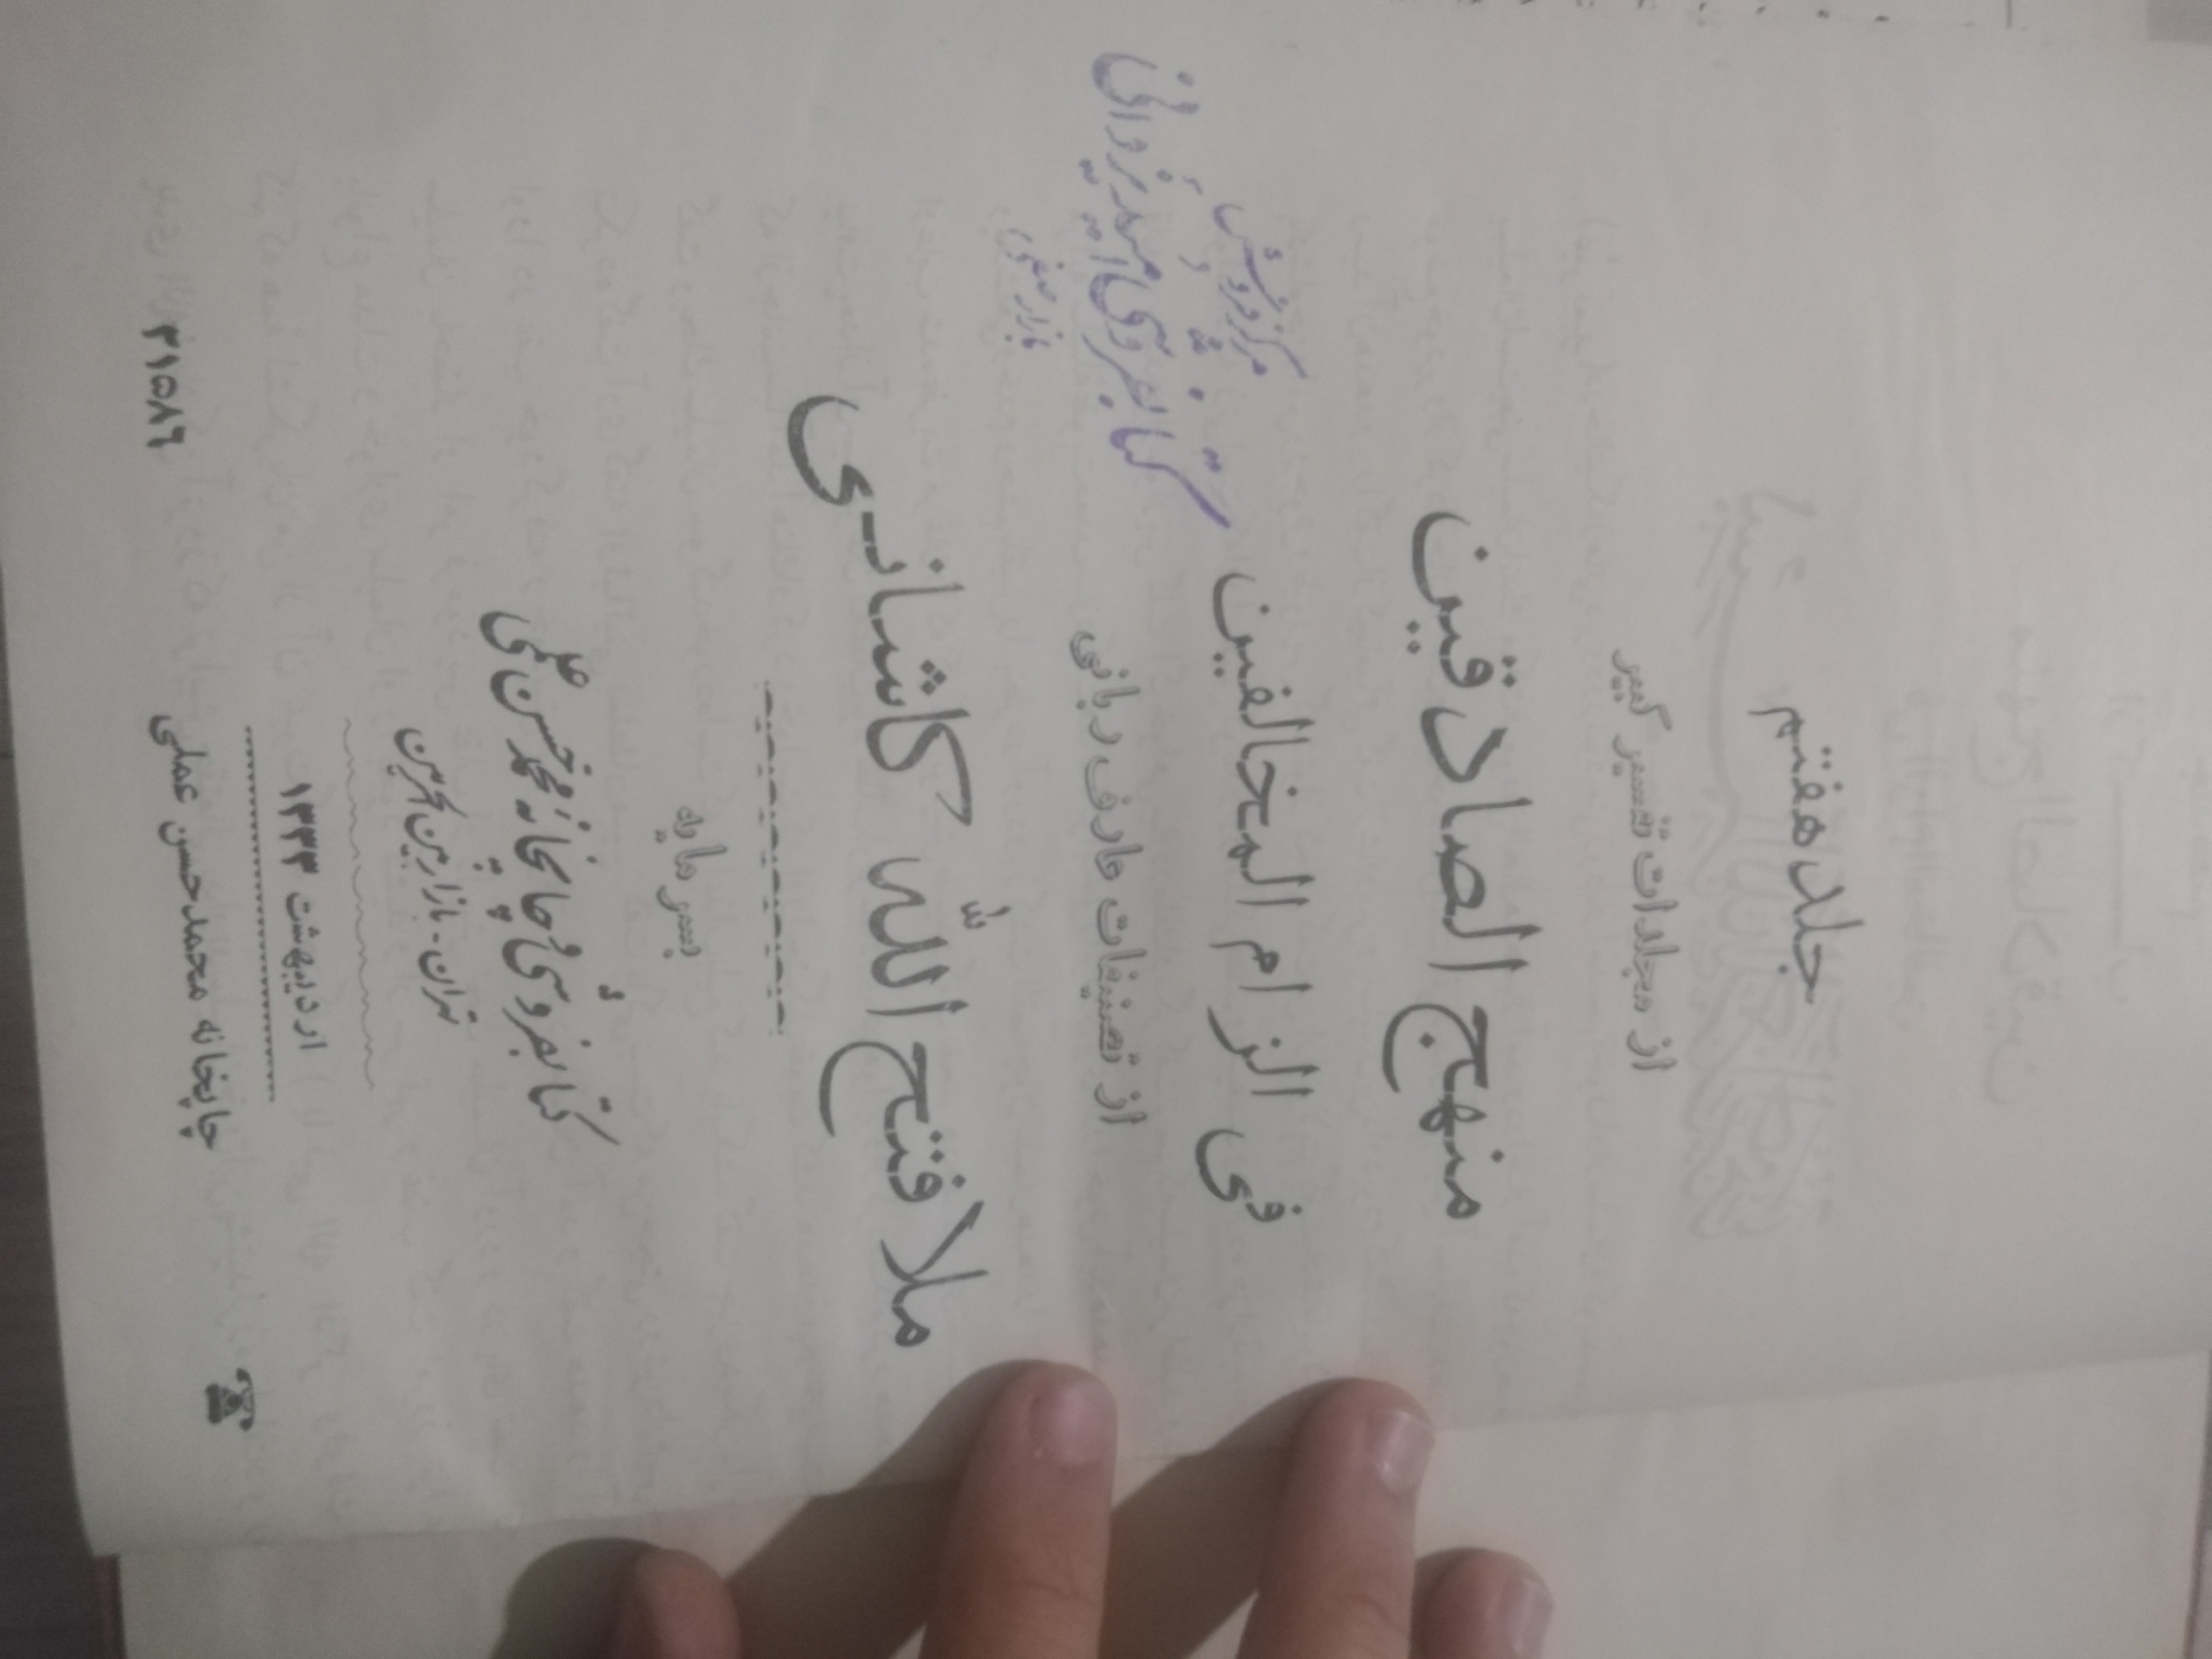 جلد هفتم
از مجلدات تفسیر کبیر
منهج الصادقین
فی الزام المخالفین
از تصنیفات عارف ربانی
ملا فتح اللّه کاشانی
بسرمایه
کتابفروشی و چاپخانهٔ محمد حسن علمی
تهران - بازار بین الحرمین
اردیبهشت ۱۳۳۳
چاپخانه محمدحسن عملی
۲۱۵۸۶
مرکز فروش
کتابفروشی
بازار